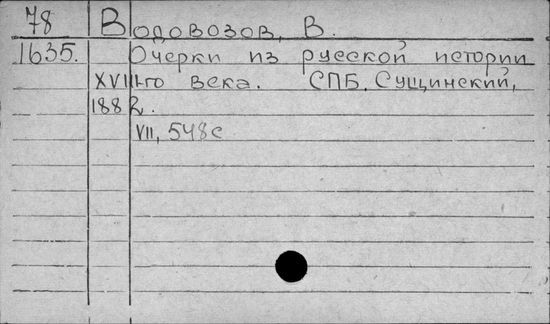 78 Водовозов, В.
1635. Очерки из русской истории
XVIII-го века. СПБ, Сущинский,
1882.
VII, 548с